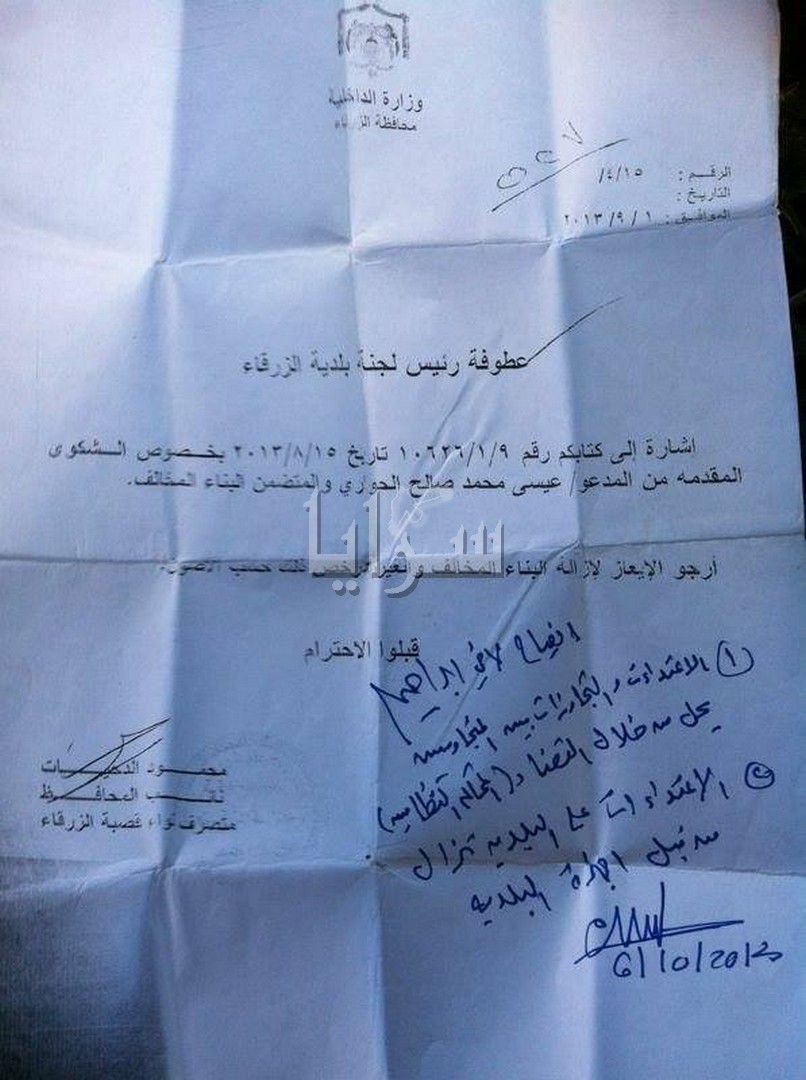 وزارة الداخلية
محافظة الزرقاء
الرقـم : ١٥/٤/
التاريخ :
الموافق : ٢٠١٣/٩/١
عطوفة رئيس لجنة بلدية الزرقاء
اشارة إلى كتابكم رقم ١٠٦٢٦/١/٩ تاريخ ٢٠١٣/٨/١٥ بخصوص الشكوى
المقدمه من المدعو/ عيسى محمد صالح الحواري والمتضمن البناء المخالف.
سرايا
أرجو الإيعاز لإزالة البناء المخالف والغير مرخص ذلك حسب الأصول.
قبلوا الاحترام
محمـود الدحيـات
نائـب المحافـظ
متصرف لواء قصبة الزرقاء
ابراهيم
١ الاعتداءات والتجاوزات بين المتجاورين
يحل من خلال القضاء
٢ الاعتداءات على البلدية تزال
من قبل اجهزة البلدية
6/10/2013